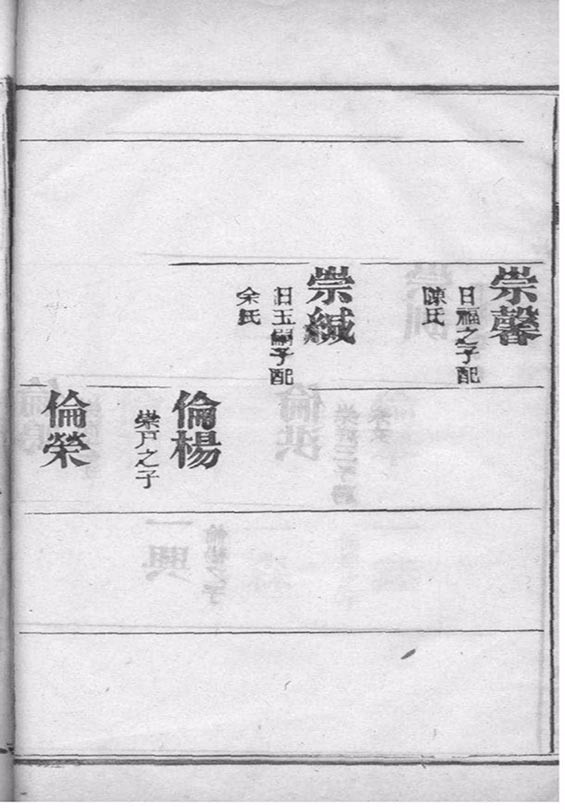 崇馨
日福之子配
陳氏
崇緘
日玉嗣子配
余氏
倫楊
崇戸之子
倫榮